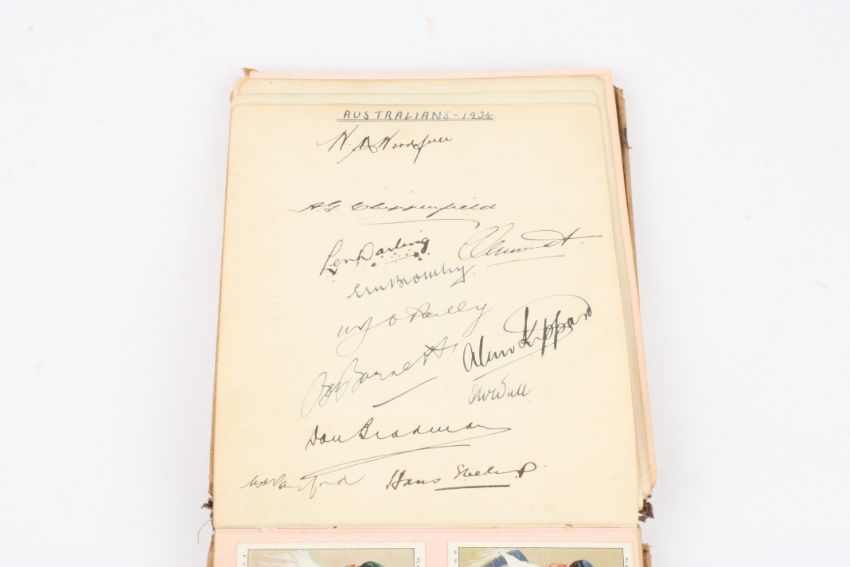 AUSTRALIANS - 1934
H. A. Woodfull
A.G. Chipperfield
Len Darling
C. Grimmett.
Ern Bromley.
W J O'Reilly
Alan Kippax
B A Barnett
T W Wall
Don Bradman
W H Ponsford
Hans Ebeling.